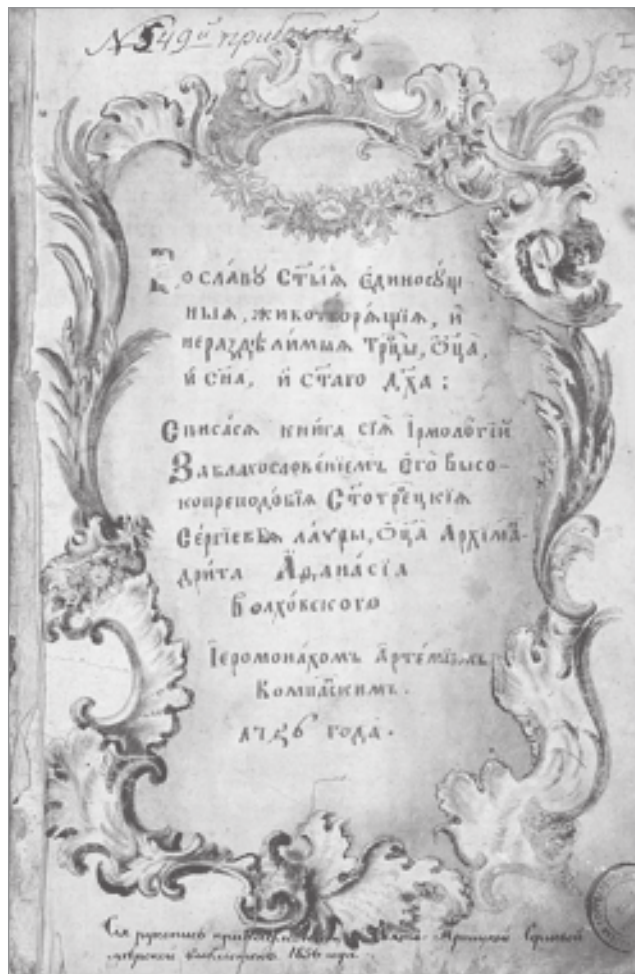 N 549й прибылой
Во сла́вꙋ Ст҃ы́ѧ є҆диносꙋ́щ-
ныѧ, животворѧ́щїѧ, и҆
нераздѣли́мыѧ Трⷪ҇цы, Ѻ҆ц҃а̀,
и҆ сн҃а, и҆ ст҃а́го дх҃а:
Списа́сѧ кни́га сїѧ̀ І҆рмоло́гїй
За благослове́нїемъ є҆гѡ̀ высо-
копреподо́бїѧ Ст҃отрⷪ҇ецкїѧ
Се́ргїевыѧ ла́ѵры, Ѻ҆ц҃а̀ Архїма-
дри́та А҆ѳана́сїѧ
Волхо́вскогѡ
І҆еромона́хомъ А҆рте́мїемъ
Компа́нскимъ.
года̀.
Сія рукопись Свято-Троицкой Сергіевой
лаврской библіотекѣ 1856 года.